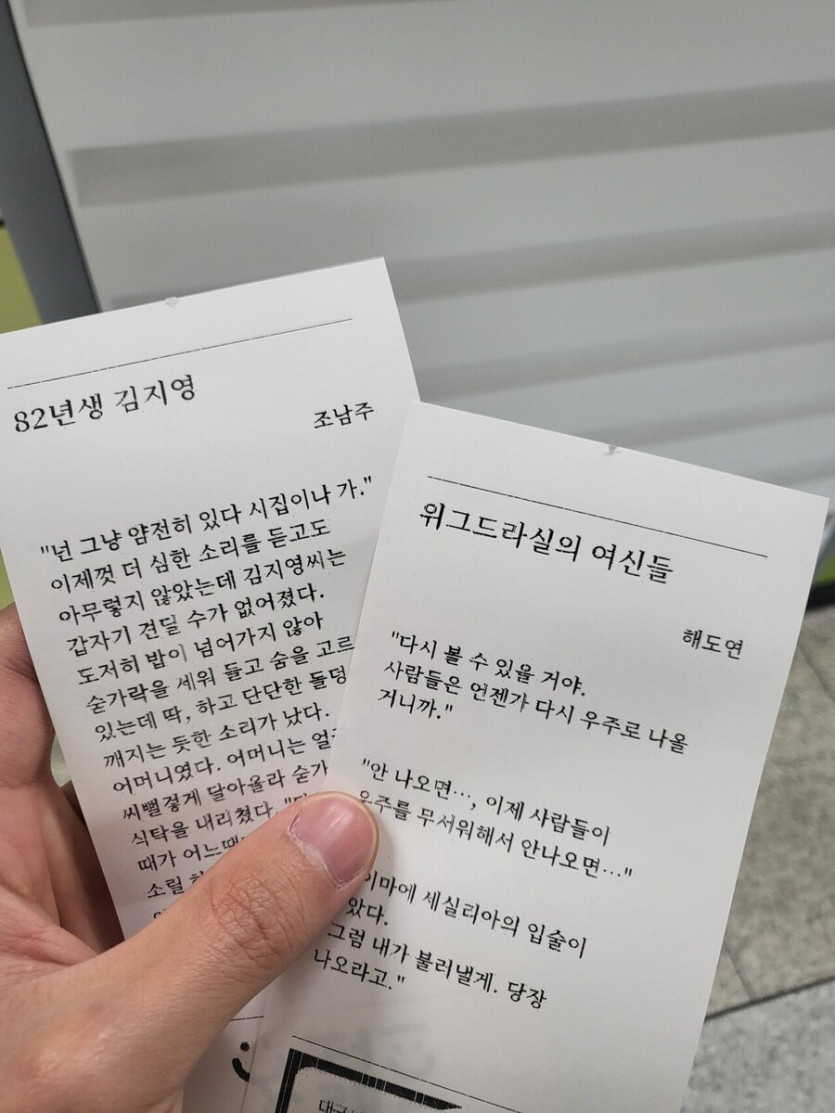 82년생 김지영
조남주
"넌 그냥 얌전히 있다 시집이나 가."
이제껏 더 심한 소리를 듣고도
아무렇지 않았는데 김지영씨는
갑자기 견딜 수가 없어졌다.
도저히 밥이 넘어가지 않아
숟가락을 세워 들고 숨을 고르
있는데 딱, 하고 단단한 돌덩
깨지는 듯한 소리가 났다.
어머니였다. 어머니는
씨뻘겋게 달아올라
식탁을 내리쳤다.
때가
소릴
위그드라실의 여신들
해도연
"다시 볼 수 있을 거야.
사람들은 언젠가 다시 우주로 나올
거니까."
"안 나오면…, 이제 사람들이
우주를 무서워해서 안나오면…"
이마에 세실리아의 입술이
았다.
그럼 내가 불러낼게. 당장
나오라고."